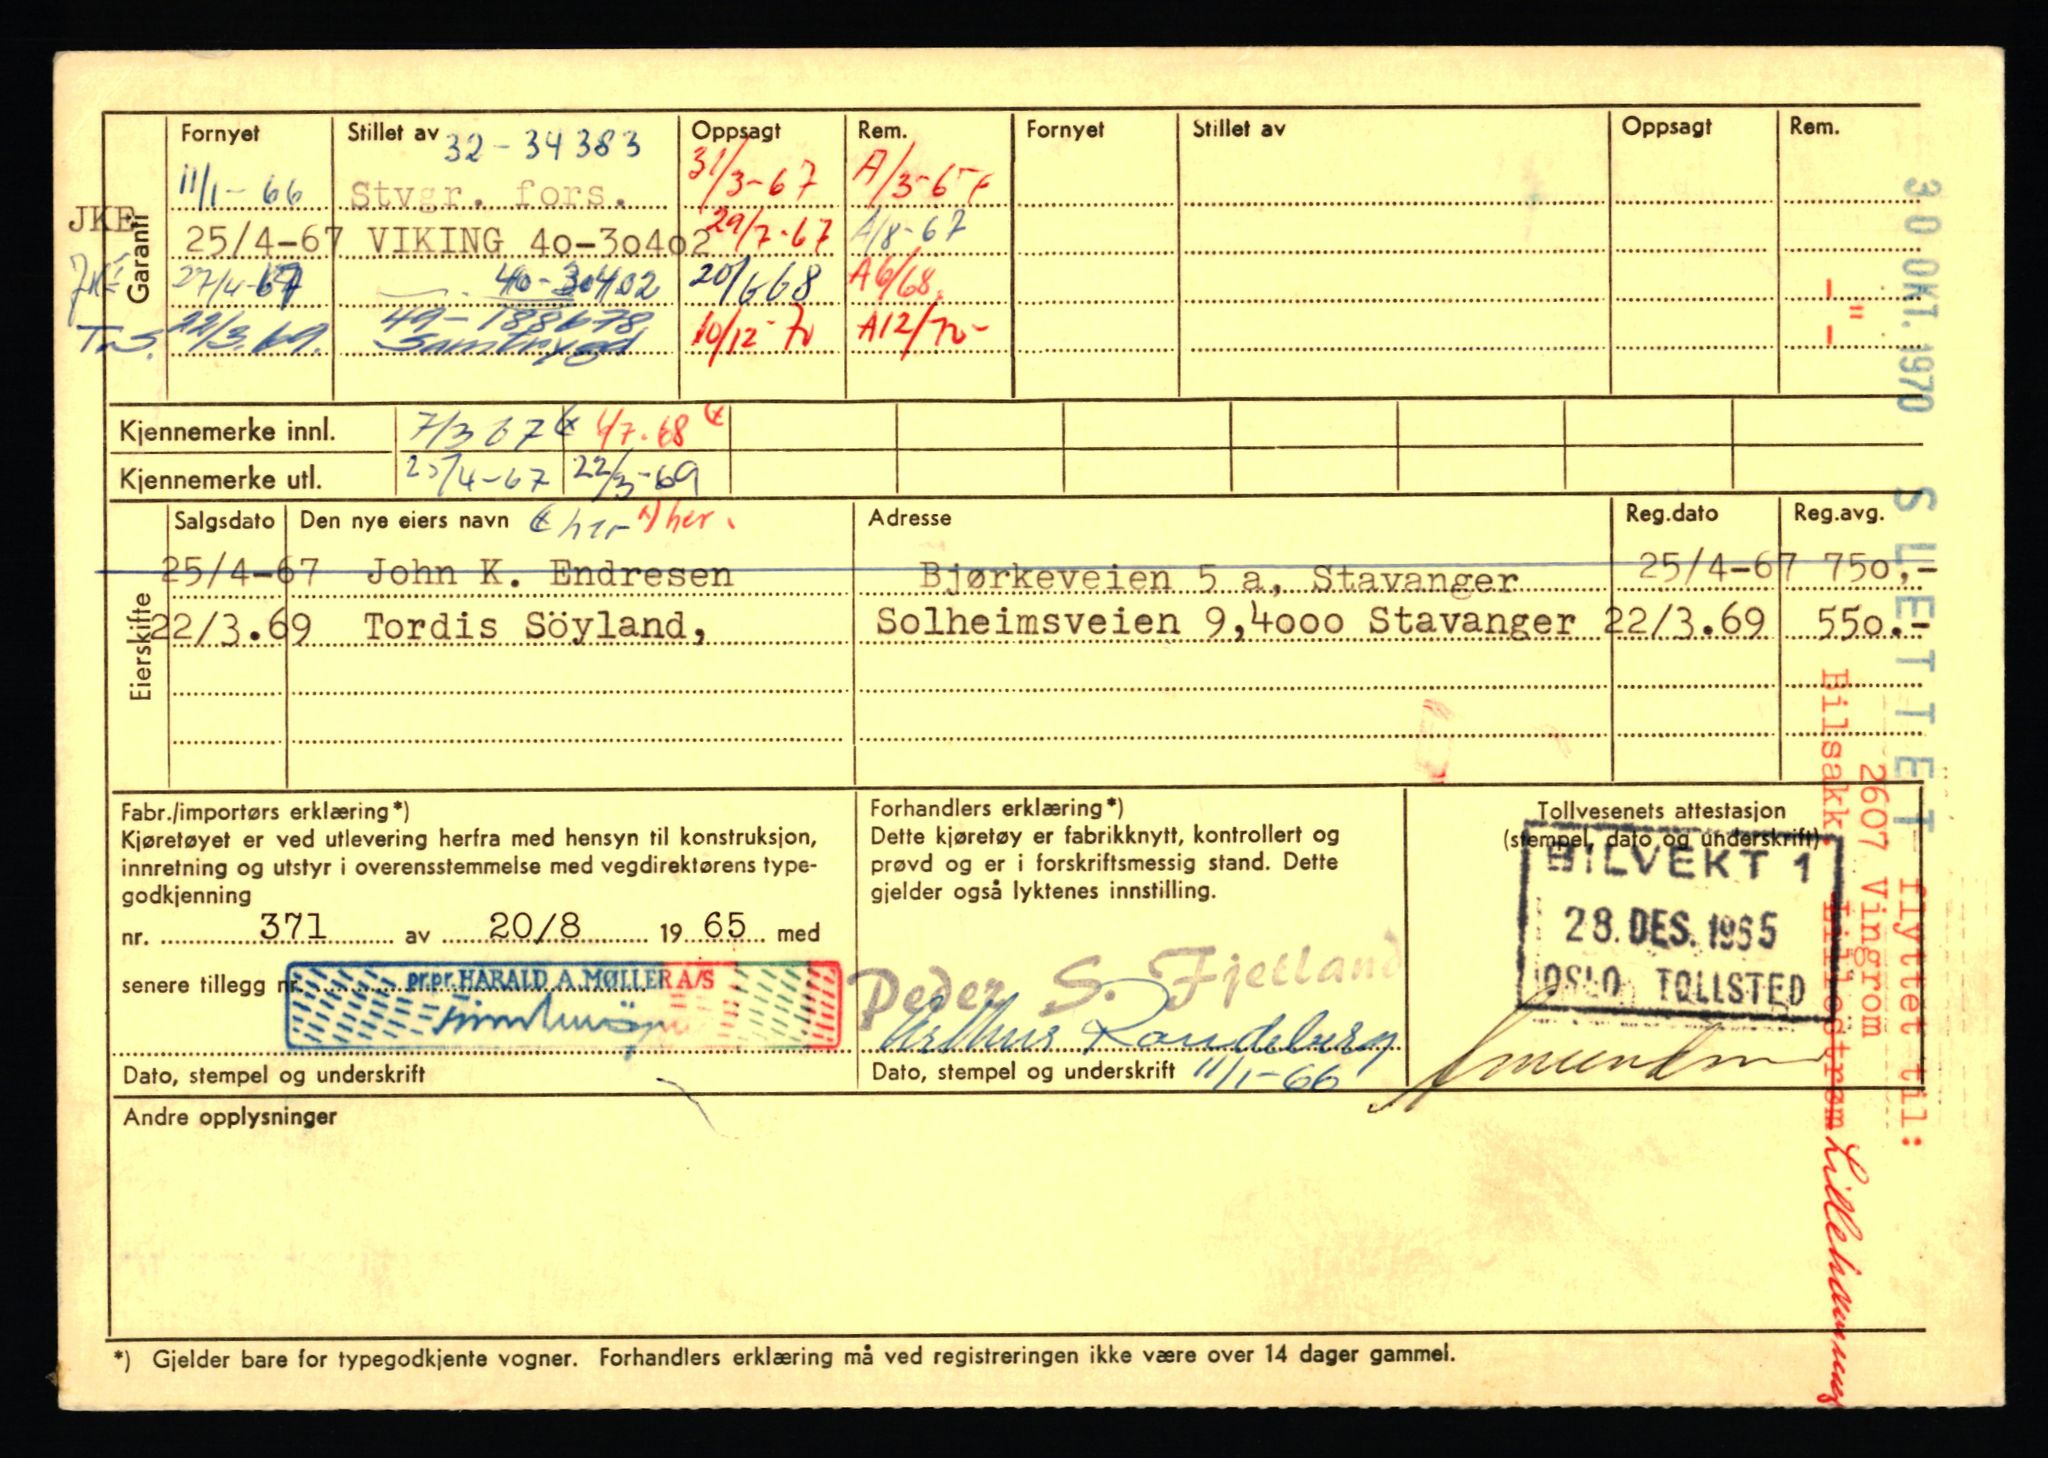 Garanti
Fornyet Stillet av 32-34383 Oppsagt Rem. Fornyet Stillet av Oppsagt Rem.
11/1-66 Stvgr. fors. 31/3-67
JKE 25/4-67 VIKING 40-30402 29/7-67 A/8-67
JKE 27/4-67 40-30402 20/6 68 A6/68
TnS. 22/3.69. 49-188678 10/12-70 A12/70-
Samtrygd
- " -
Kjennemerke innl. 7/3 67 4/7-68
Kjennemerke utl. 25/4-67 22/3-69
Eierskifte
Salgsdato Den nye eiers navn her her. Adresse Reg.dato Reg.avg.
25/4-67 John K. Endresen Bjørkeveien 5 a, Stavanger 25/4-67 750,-
22/3.69 Tordis Söyland, Solheimsveien 9,4000 Stavanger 22/3.69 550.-
Fabr./importørs erklæring*)
Kjøretøyet er ved utlevering herfra med hensyn til konstruksjon,
innretning og utstyr i overensstemmelse med vegdirektørens type-
godkjenning
nr. 371 av 20/8 19 65 med
senere tillegg nr.
pr.pr. HARALD A. MØLLER A/S
Dato, stempel og underskrift
Forhandlers erklæring*)
Dette kjøretøy er fabrikknytt, kontrollert og
prøvd og er i forskriftsmessig stand. Dette
gjelder også lyktenes innstilling.
Peder S. Fjelland
Arthur Randeberg
Dato, stempel og underskrift 11/1-66
Tollvesenets attestasjon
(stempel, dato og underskrift)
BILVEKT 1
28. DES. 1965
OSLO TOLLSTED
Andre opplysninger
*) Gjelder bare for typegodkjente vogner. Forhandlers erklæring må ved registreringen ikke være over 14 dager gammel.
30. OKT. 1970 SLETTET
flyttet til:
2607 Vingrom
Bilsakk. Lillestrøm Lillehammer